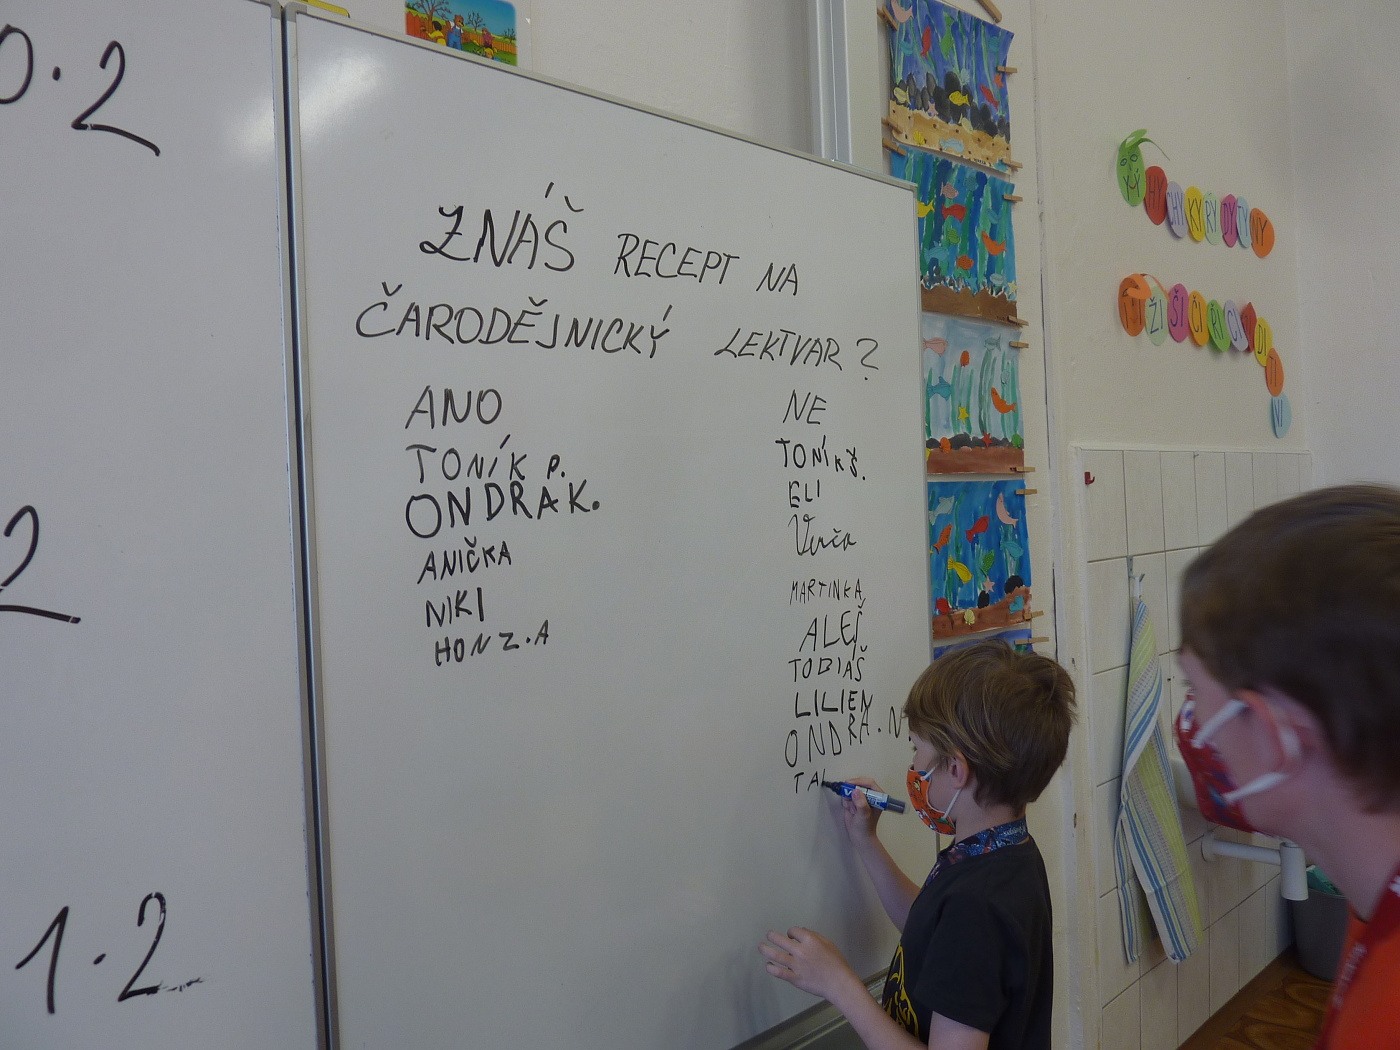 0·2
2
1·2
ZNÁŠ RECEPT NA
ČARODĚJNICKÝ LEKTVAR?
ANO
TONÍK P.
ONDRA K.
ANIČKA
NIKI
HONZ.A
NE
TONÍK Š.
ELI
Verča
MARTINKA
ALEŠ
TOBIÁŠ
LILIEN
ONDRA.N.
HY CHY KY RY DY TY NY
ŽI ŠI ČI ŘI CI DI TI NI